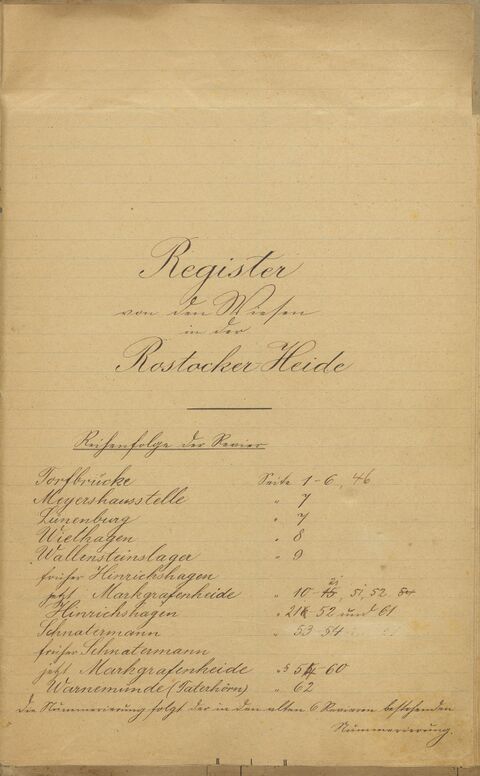 Register
von den Wiesen
in der
Rostocker Heide
Reihenfolge der Revier
Torfbrücke Seite 1-6, 46
Meyershausstelle " 7
Lünenburg " 7
Wiethagen " 8
Wallensteinslager " 9
früher Hinrichshagen
jetzt Markgrafenheide " 10 - 51, 52
Hinrichshagen " 52 und 61
Schnatermann " 53-54
früher Schnatermann
jetzt Markgrafenheide 60
Warnemünde (Taterhörn) " 62
Die Nummerierung folgt der in den alten 6 Revieren bestehenden
Nummerierung.